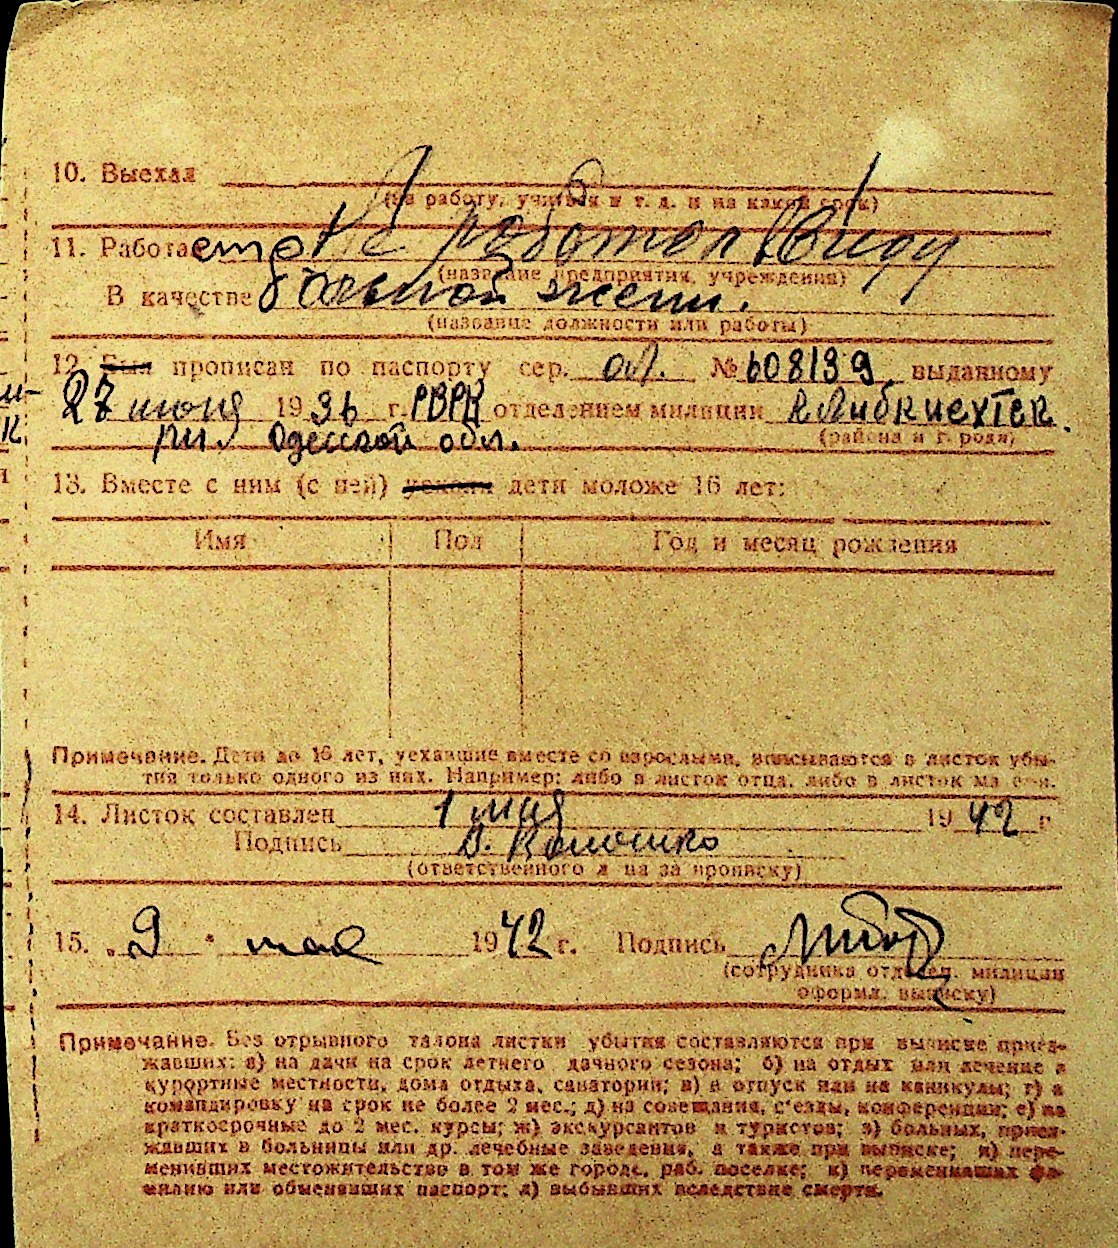 10. Выехал
(на работу, учиться и т. д. и на какой срок)
11. Работает Не работал ввиду
(название предприятия, учреждения)
В качестве больной жены.
(название должности или работы)
12. Был прописан по паспорту сер. ол. № 608139 выданному
27 июня 1936 г. РВРК отделением милиции
(района и города)
Одесской обл.
13. Вместе с ним (с ней) дети моложе 16 лет:
Имя Пол Год и месяц рождения
Примечание. Дети до 16 лет, уехавшие вместе со взрослыми, вписываются в листок убы-
тия только одного из них. Например: либо в листок отца, либо в листок матери.
14. Листок составлен 1 мая 1942 г
Подпись
(ответственного лица за прописку)
15. „9 " мая 1942 г. Подпись
(сотрудника отделен. милиции
оформл. выписку)
Примечание. Без отрывного талона листки убытия составляются при выписке приез-
жавших: а) на дачи на срок летнего дачного сезона; б) на отдых или лечение в
курортные местности, дома отдыха, санатории; в) в отпуск или на каникулы; г) в
командировку на срок не более 2 мес.; д) на совещания, с'езды, конференции; е) на
краткосрочные до 2 мес. курсы; ж) экскурсантов и туристов; з) больных, приез-
жавших в больницы или др. лечебные заведения, а также при выписке; и) пере-
менивших местожительство в том же городе, раб. поселке; к) переменивших фа-
милию или обменявших паспорт; л) выбывших вследствие смерти.